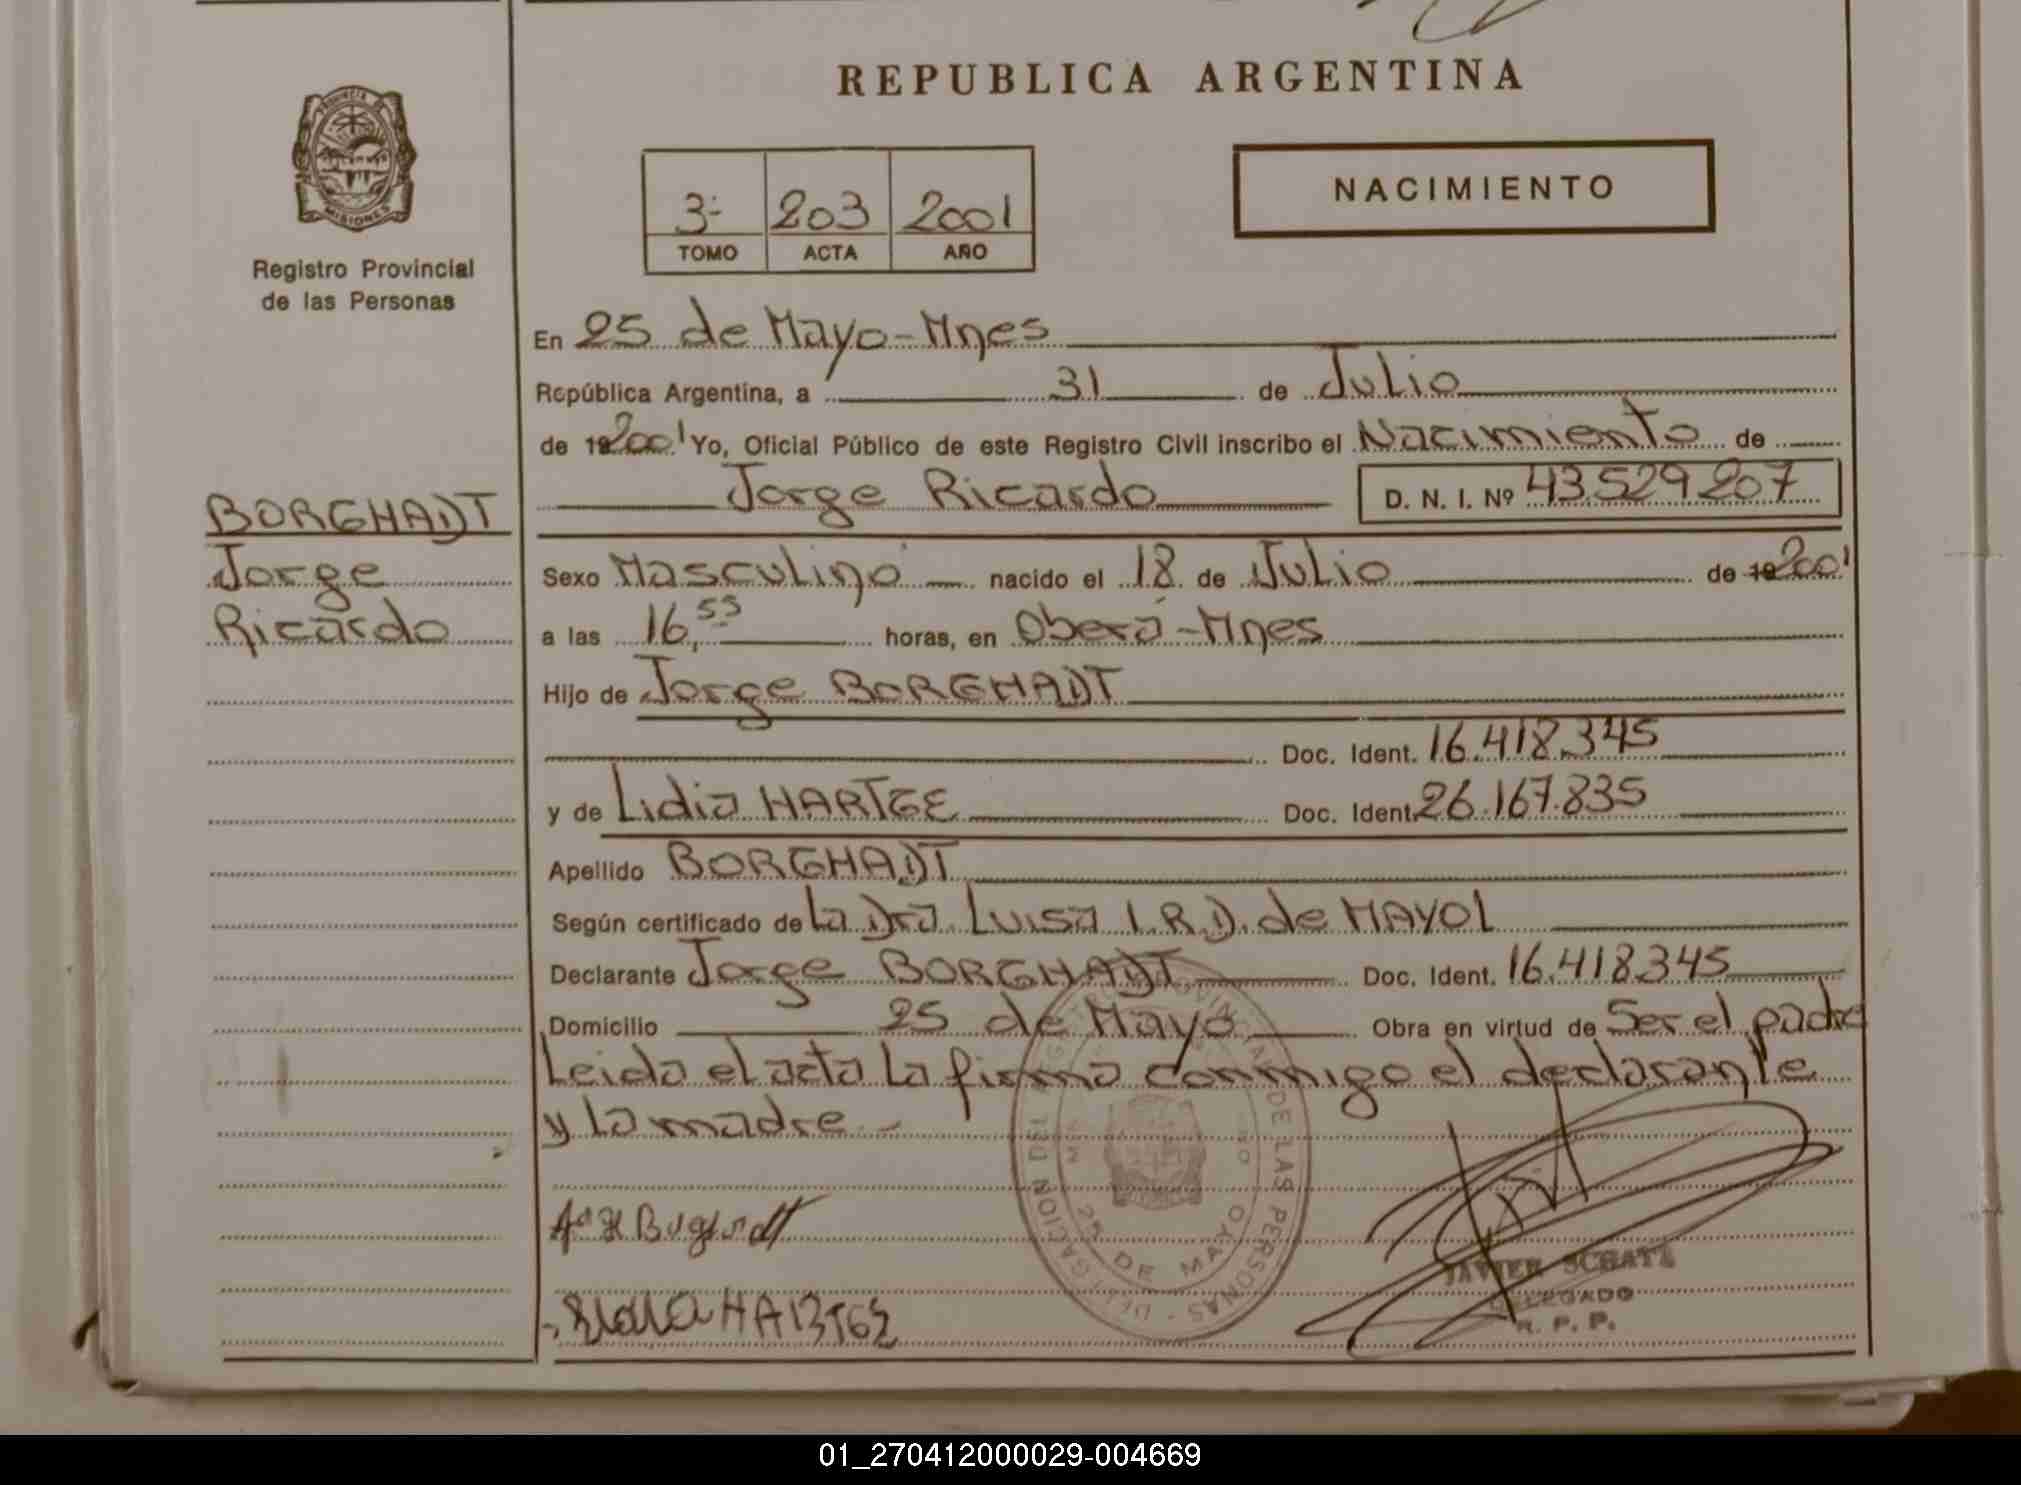 REPUBLICA ARGENTINA
PROVINCIA DE
MISIONES
Registro Provincial
de las Personas
3- 203 2001
TOMO ACTA AÑO
NACIMIENTO
En 25 de Mayo-Mnes
República Argentina, a 31 de Julio
de 192001 Yo, Oficial Público de este Registro Civil inscribo el Nacimiento de
Jorge Ricardo D. N. I. Nº 43.529207
BORGHADT
Jorge
Ricardo
Sexo Masculino nacido el 18 de Julio de 192001
a las 16,55 horas, en Oberá-Mnes
Hijo de Jorge BORGHADT
Doc. Ident. 16.418.345
y de Lidia HARTGE Doc. Ident. 26.167.835
Apellido BORGHADT
Según certificado de La Dra. Luisa I.R.D. de MAYOL
Declarante Jorge BORGHADT Doc. Ident. 16.418.345
Domicilio 25 de Mayo Obra en virtud de Ser el padre
Leida el acta la firma conmigo el declarante
y la madre.-
DELEGACION DEL REGISTRO PROVINCIAL DE LAS PERSONAS
25 DE MAYO
HARTGE
JAVIER SCHATZ
DELEGADO
R. P. P.
01_270412000029-004669